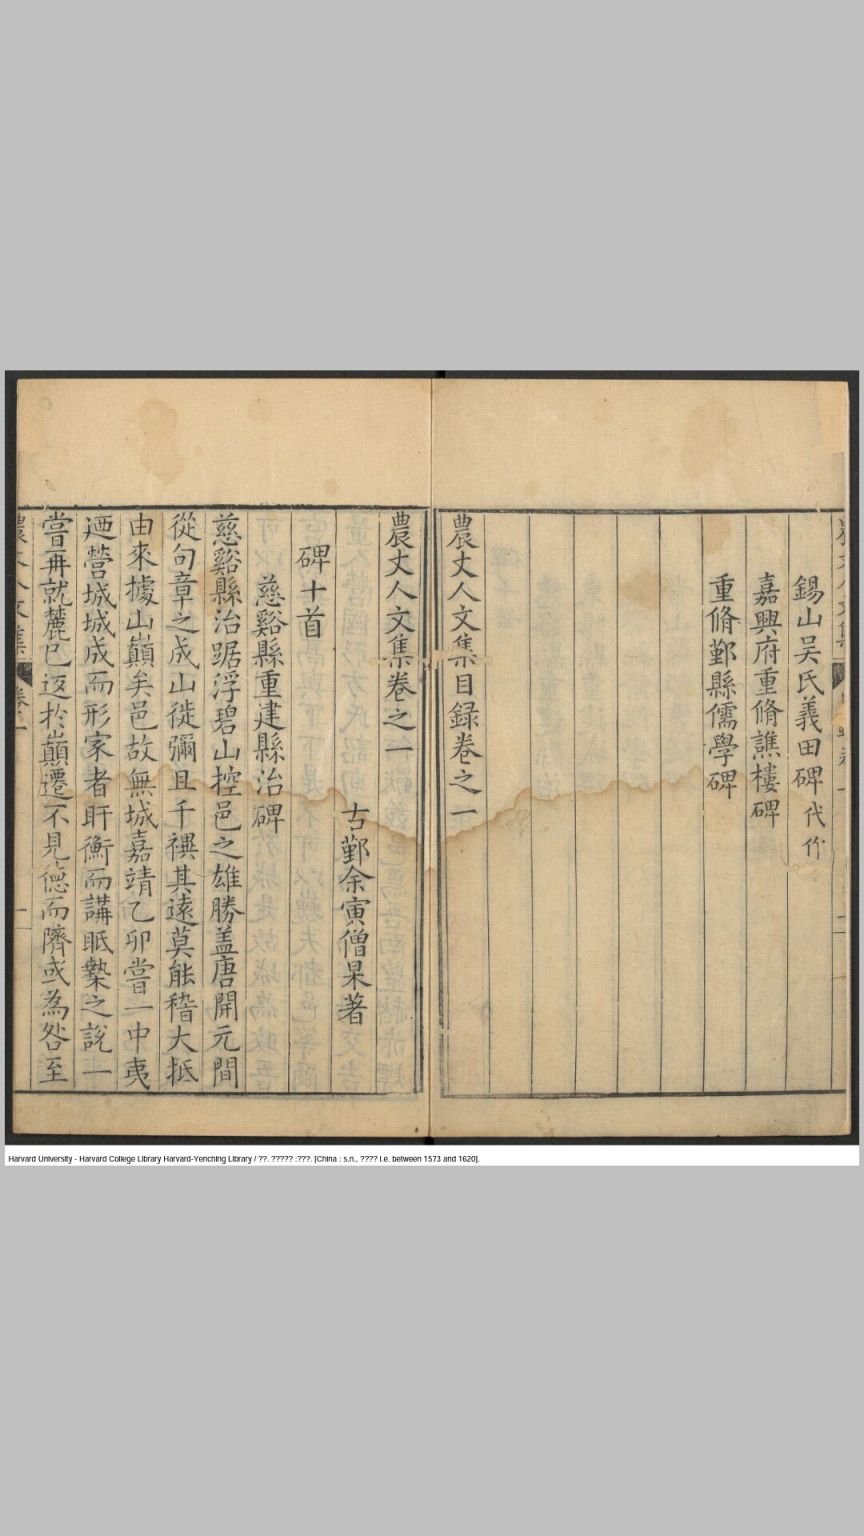 錫山吴氏義田碑代作
嘉興府重脩譙樓碑
重脩鄞縣儒學碑
農丈人文集目録卷之一
農丈人文集卷之一
古鄞余寅僧杲著
碑十首
慈谿縣重建縣治碑
慈谿縣治踞浮碧山控邑之雄勝盖唐開元間
從句章之成山徙彌且千禩其遠莫能稽大抵
由來據山巔矣邑故無城嘉靖乙卯嘗一中夷
迺營城城成而形家者盱衡而講眂墊之說一
嘗再就麓已返於巔遷不見德而隮或為咎至
農丈人文集
卷之一
Harvard University - Harvard College Library Harvard-Yenching Library / ??. ????? :???. [China : s.n., ???? i.e. between 1573 and 1620].